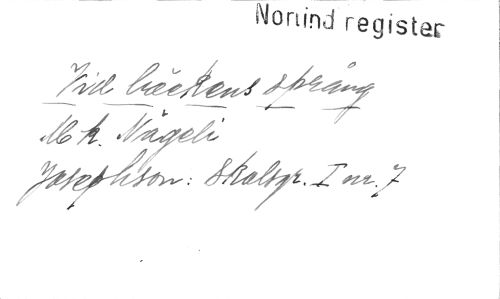 Norlind register
Vid bäckens språng
M k. Nägeli
Josephson: Skolsgr. I nr. 7